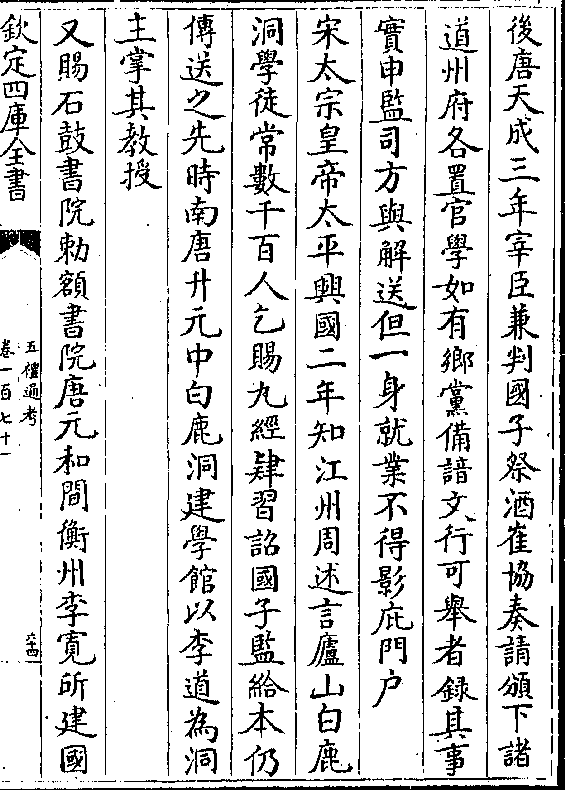 後唐天成三年宰臣兼判國子祭酒崔協奏請頒下諸
道州府各置官學如有鄉黨備諳文行可舉者録其事
實申監司方與解送但一身就業不得影庇門户
宋太宗皇帝太平興國二年知江州周述言廬山白鹿
洞學徒常數千百人乞賜九經肄習詔國子監給本仍
傳送之先時南唐升元中白鹿洞建學館以李道為洞
主掌其教授
又賜石鼓書院勅額書院唐元和間衡州李寛所建國
欽定四庫全書
五禮通考
卷一百七十一
六十四